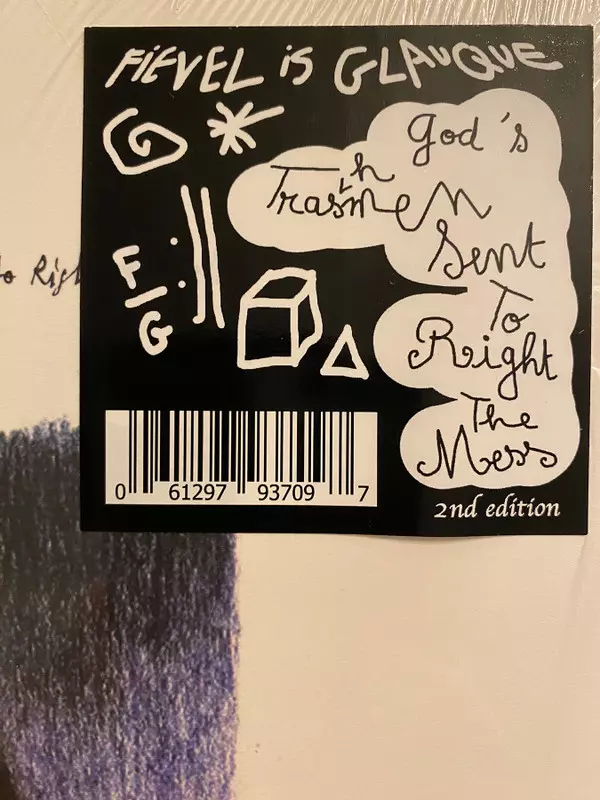 FiEVEL iS GLAUQUE
God's
Trashmen
Sent
To
Right
The
Mess
F/G
0 61297 93709 7
2nd edition
to Rig